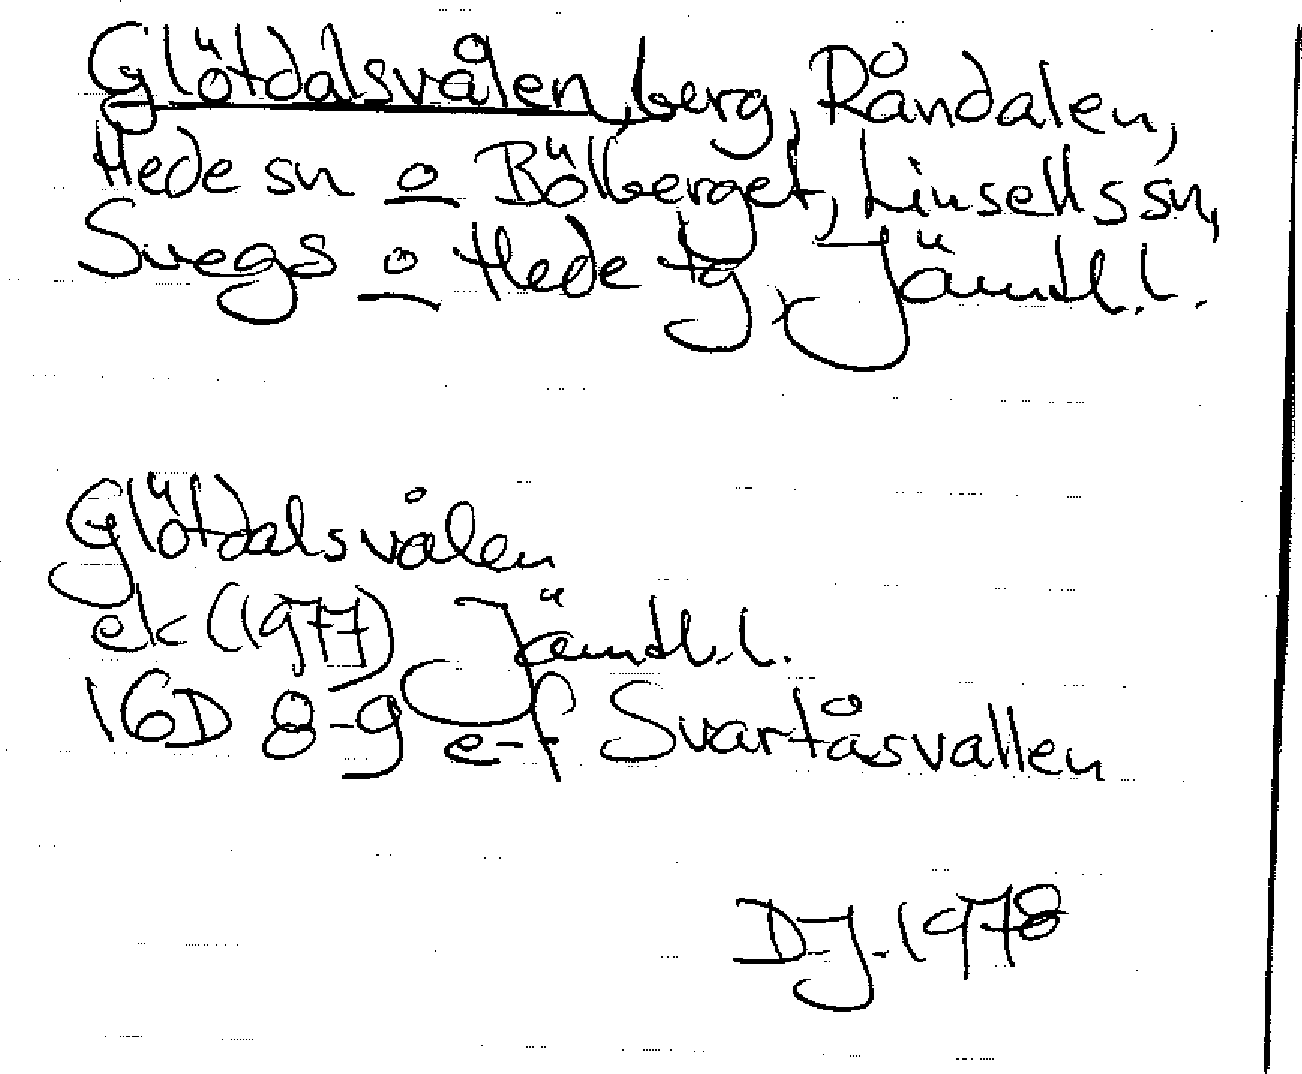 Glötdalsvålen, berg, Råndalen,
Hede sn o Bölberget, Linsells sn,
Svegs o Hede tg, Jämtl.l.
Glötdalsvålen
ek (1977) Jämtl.l.
16D 8-9 e-f Svartåsvallen
D.J. 1978